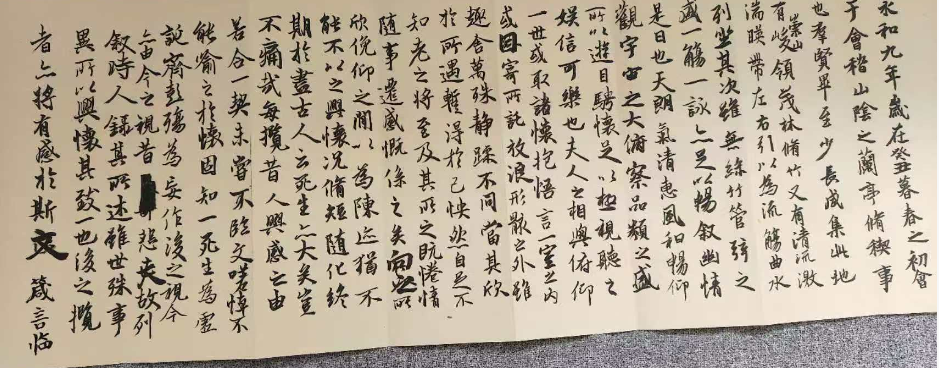 永和九年歲在癸丑暮春之初會
于會稽山陰之蘭亭脩禊事
也羣賢畢至少長咸集此地
有崇山峻領茂林脩竹又有清流激
湍暎帶左右引以為流觴曲水
列坐其次雖無絲竹管弦之
盛一觴一詠亦足以暢叙幽情
是日也天朗氣清惠風和暢仰
觀宇宙之大俯察品類之盛
所以遊目騁懷足以極視聽之
娛信可樂也夫人之相與俯仰
一世或取諸懷抱悟言一室之內
或因寄所託放浪形骸之外雖
趣舍萬殊静躁不同當其欣
於所遇蹔得於己怏然自足不
知老之將至及其所之既惓情
隨事遷感慨係之矣向之所
欣俛仰之閒以為陳迹猶不
能不以之興懷況脩短隨化終
期於盡古人云死生亦大矣豈
不痛哉每攬昔人興感之由
若合一契未嘗不臨文嗟悼不
能喻之於懷固知一死生為虛
誕齊彭殤為妄作後之視今
亦由今之視昔悲夫故列
叙時人錄其所述雖世殊事
異所以興懷其致一也後之攬
者亦將有感於斯文 箴言臨